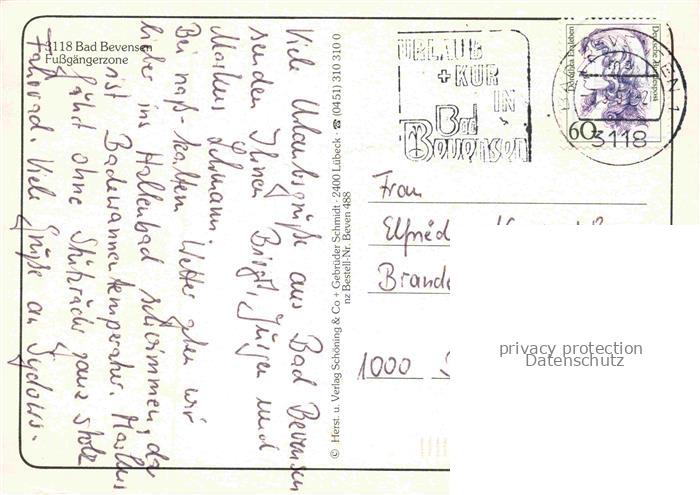 3118 Bad Bevensen
Fußgängerzone
Viele Urlaubsgrüße aus Bad Bevensen
senden Ihnen Birgit, Jürgen und
Markus
Bei naß-kaltem Wetter gehen wir
lieber ins Hallenbad schwimmen, da
ist Badewannentemperatur. Markus
fährt ohne Stützräder ganz stolz
Fahrrad. Viele Grüße an Sydows.
© Herst. u. Verlag Schöning & Co + Gebrüder Schmidt · 2400 Lübeck · ☎ (0451) 310 310 0
nz Bestell-Nr. Beven 488
URLAUB
+ KUR
IN
Bad
Bevensen
Dorothea Erxleben
Deutsche Bundespost
60
3118
Frau
Elfried
Brande
1000
privacy protection
Datenschutz